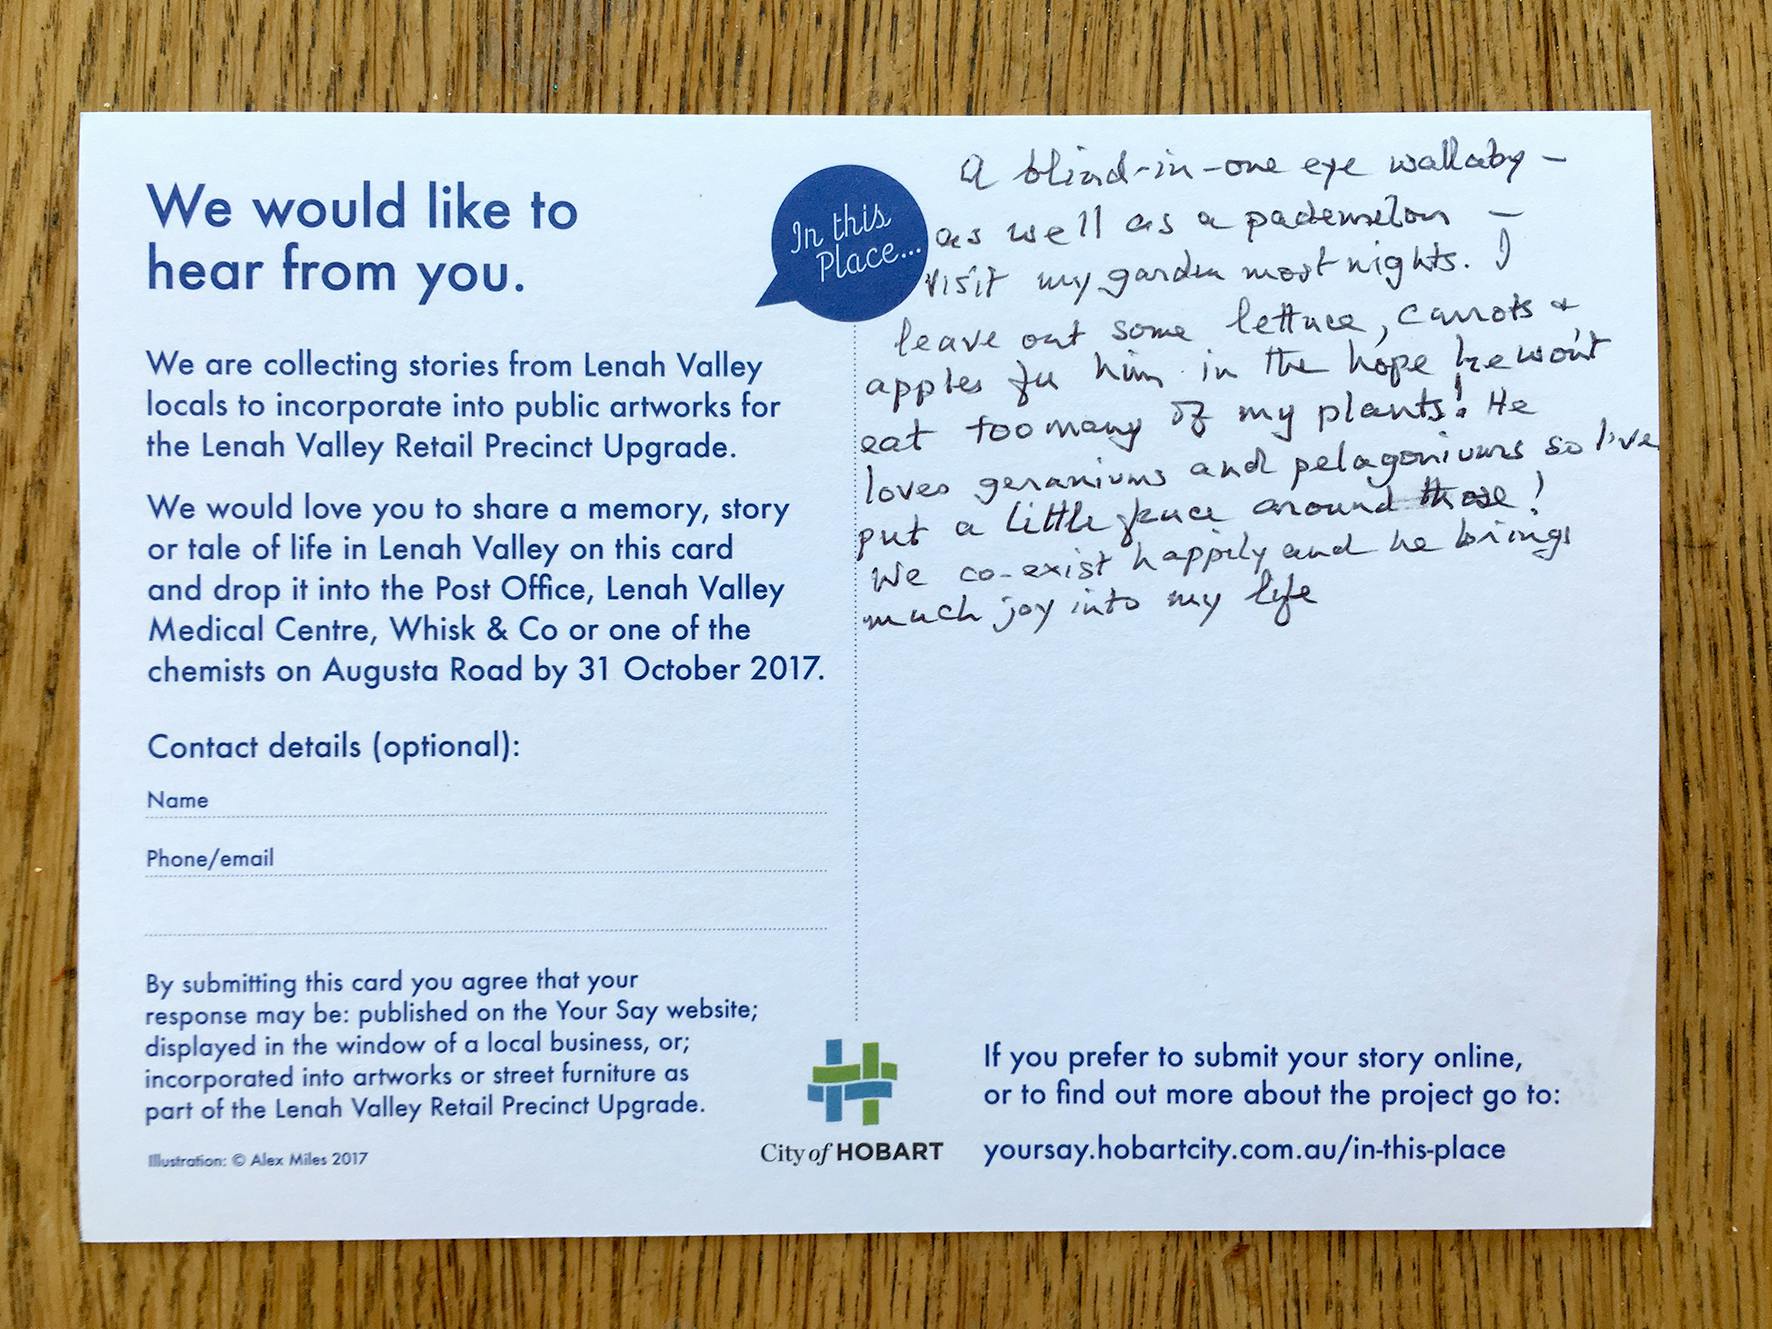 We would like to
hear from you.
We are collecting stories from Lenah Valley
locals to incorporate into public artworks for
the Lenah Valley Retail Precinct Upgrade.
We would love you to share a memory, story
or tale of life in Lenah Valley on this card
and drop it into the Post Office, Lenah Valley
Medical Centre, Whisk & Co or one of the
chemists on Augusta Road by 31 October 2017.
Contact details (optional):
Name
Phone/email
By submitting this card you agree that your
response may be: published on the Your Say website;
displayed in the window of a local business, or;
incorporated into artworks or street furniture as
part of the Lenah Valley Retail Precinct Upgrade.
Illustration: © Alex Miles 2017
In this
Place...
A blind-in-one eye wallaby –
as well as a pademelon –
visit my garden most nights. I
leave out some lettuce, carrots +
apples for him in the hope he won't
eat too many of my plants! He
loves geraniums and pelagoniums so I've
put a little fence around those!
We co-exist happily and he brings
much joy into my life
City of HOBART
If you prefer to submit your story online,
or to find out more about the project go to:
yoursay.hobartcity.com.au/in-this-place